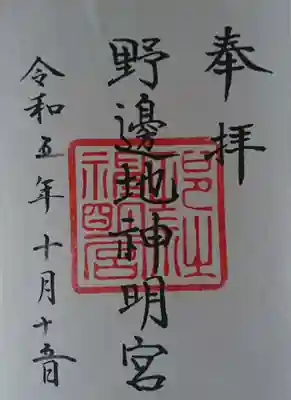 奉拝
野邊地神明宮
令和五年十月十五日